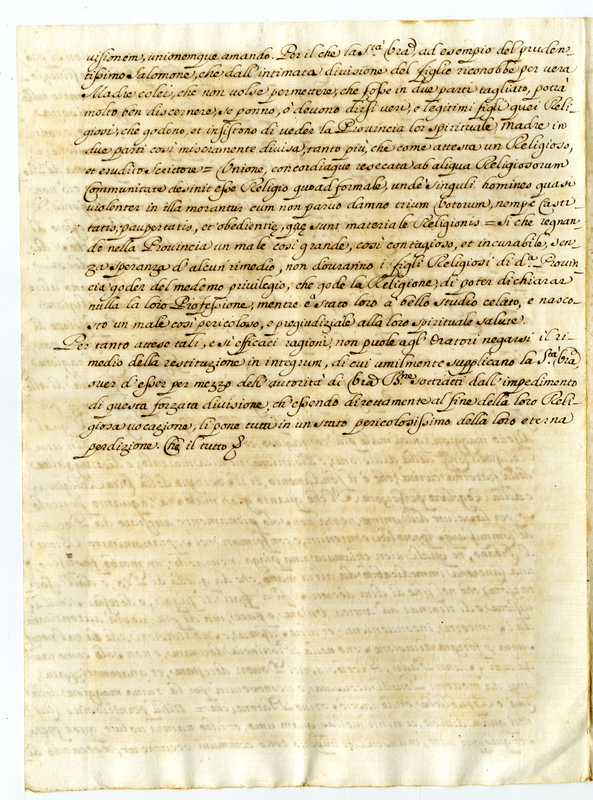 visionem, unionemque amando. Per il che la S.tà V'ra, ad esempio del pruden
tissimo Salomone, che dall'intimata divisione del figlio riconobbe per vera
Madre colei, che non volse permettere, che fosse in due parti tagliato, potrà
molto ben discernere, se ponno, ò devono dirsi veri, e legitimi figli quei Reli-
giosi, che godono, et insistono di veder la Provincia lor spirituale madre in
due parti così miseramente divisa, tanto più, che come attesta un Religioso,
et erudito Scrittore = Unione, concordiaque resecata ab aliqua Religiosorum
Communitate desinit esse Religio quoad formale, unde singuli homines quasi
violenter in illa morantur cum non parvo damno trium Votorum, nempe Casti
tatis, paupertatis, et obedientie, quę sunt materiale Religionis = Si che regnan-
do nella Provincia un male così grande, così contagioso, et incurabile, sen
za speranza d'alcun rimedio, non dovranno i figli Religiosi di d.a Provin
cia goder del medemo privilegio, che gode la Religione, di poter dichiarar
nulla la loro Professione, mentre è stato loro à bello studio celato, e nasco-
sto un male così pericoloso, e pregiudiziale alla loro spirituale salute.
Per tanto attese tali, e si efficaci ragioni, non puole agl'Oratori negarsi il ri-
medio della restituzione in integrum, di cui umilmente supplicano la S.tà V'ra,
over d'esser per mezzo dell'autorità di V'ra B.ne sottratti dall'impedimento
di questa forzata divisione, ch'essendo direttamente al fine della loro Reli-
giosa vocazione, li pone tutti in un stato pericolosissimo della loro eterna
perdizione. Che il tutto